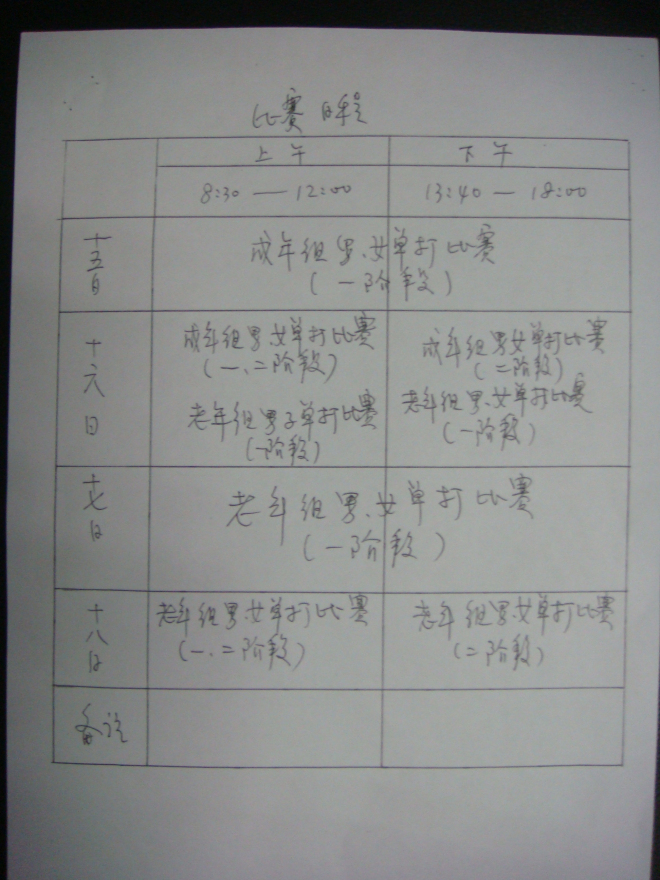 比赛日程
上午 下午
8:30 — 12:00 13:40 — 18:00
十五日 成年组男、女单打比赛
(一阶段)
十六日 成年组男、女单打比赛 成年组男女单打比赛
(一、二阶段) (二阶段)
老年组男子单打比赛 老年组男、女单打比赛
(一阶段) (一阶段)
十七日 老年组男、女单打比赛
(一阶段)
十八日 老年组男、女单打比赛 老年组男、女单打比赛
(一、二阶段) (二阶段)
备注